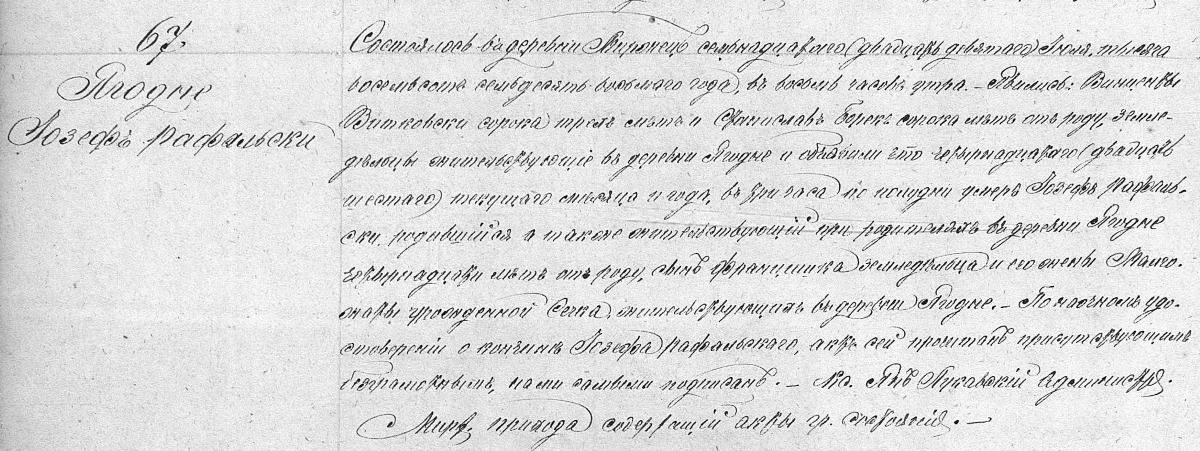 67.
Ягодне
Іозефъ Рафальски
Состоялось въ деревни семьнадцатаго (двадцать девятаго) Іюля, тысяча
восемьсотъ семьдесятъ восьмаго года, въ восемь часовъ утра. – Явились: Винценты
Витковски сорока трехъ лѣтъ и Станиславъ Борекъ сорока лѣтъ отъ роду, земле-
дѣльцы жительствующіе въ деревни Ягодне и объявили что четырнадцатаго (двадцать
шестаго) текущаго мѣсяца и года, въ три часа по полудни умеръ Іозефъ Рафаль-
ски, родившійся а также жительствующій при родителяхъ въ деревни Ягодне
четырнадцати лѣтъ отъ роду, сынъ Францишка земледѣльца и его жены Малго-
жаты урожденной Сечка, жительствующихъ въ деревни Ягодне. – По наочномъ удо-
стовереніи о кончинѣ Іозефа Рафальскаго, актъ сей прочитанъ присутствующимъ
безграмотнымъ, нами самыми подписанъ. – Кс. Янъ Админис.
прихода содержащій акты гр. состоянія. –